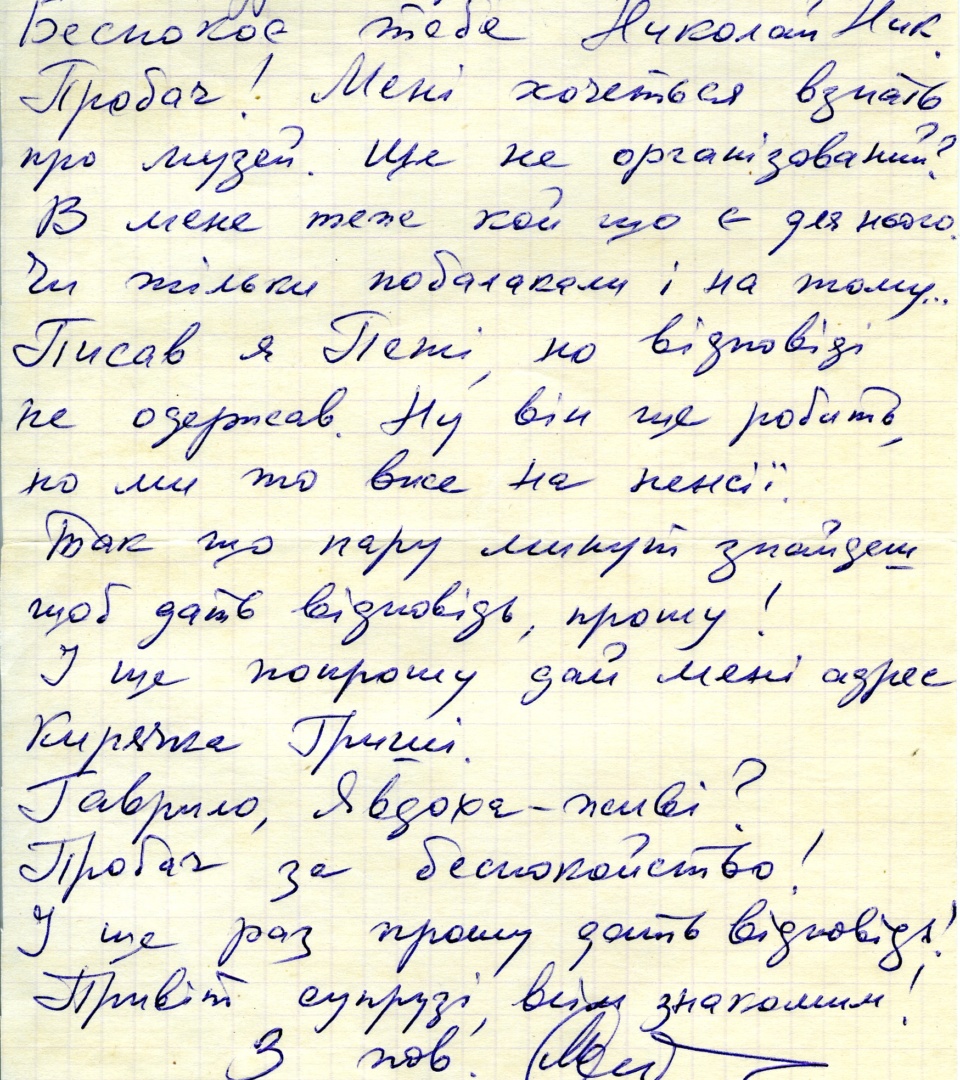 Беспокоє тебе Николай Ник.
Пробач! Мені хочеться взнать
про музей. Ще не організований?
В мене теже кой що є для нього.
Чи тільки побалакали і на тому...
Писав я Петі, но відповіді
не одержав. Ну він ще робить,
но ми то вже на пенсії.
Так що пару минут знайдеш
щоб дать відповідь, прошу!
І ще попрошу дай мені адрес
Гриші.
Гаврило, Явдоха - живі?
Пробач за беспокойство!
І ще раз прошу дать відповідь!
Привіт супрузі, всім знакомим!
З пов.